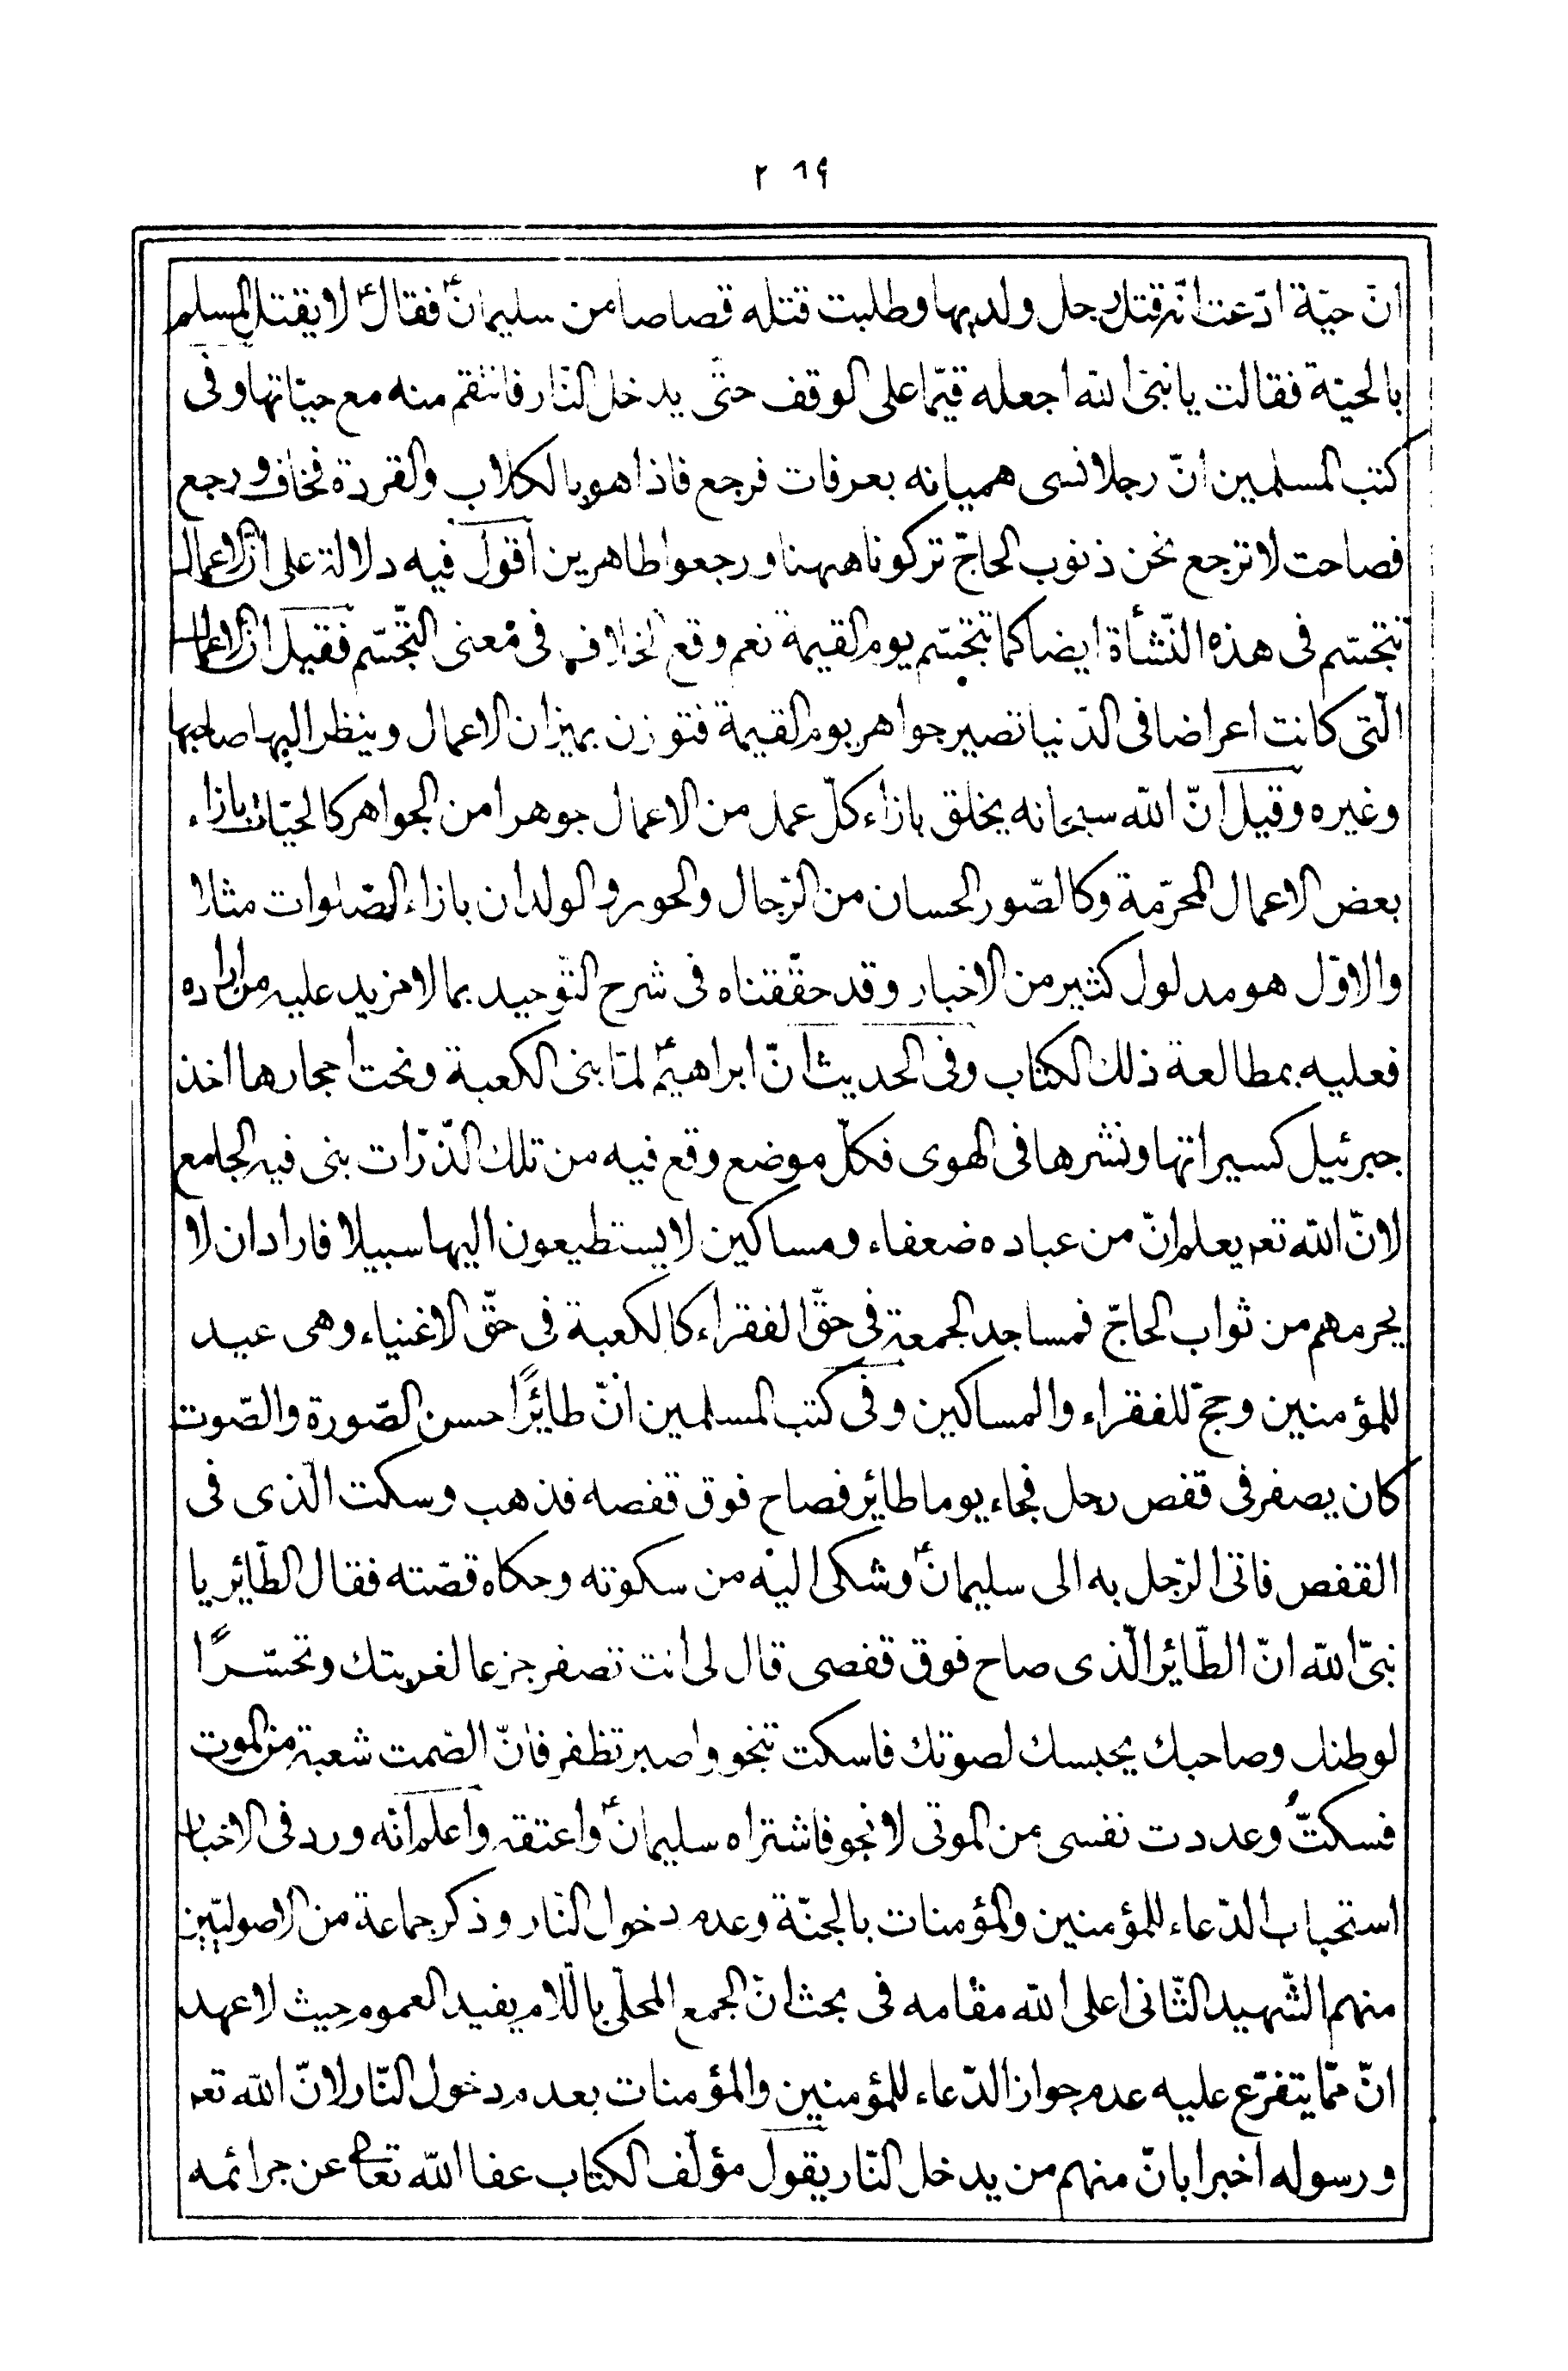 ٢٦٩
انّ حيّة ادّعت انّه قتل رجل ولديها وطلبت قتله قصاصا من سليمانؑ فقالؑ لا يقتل المسلم
بالحيّة فقالت يا نبىّ الله اجعله قيّما على الوقف حتّى يدخل النّار فانتقم منه مع حيّاتها وفى
كتب المسلمين انّ رجلا نسى هميانه بعرفات فرجع فاذا هو بالكلاب والقردة فخاف ورجع
فصاحت لا ترجع نحن ذنوب الحاجّ تركونا ههنا ورجعوا طاهرين اقول فيه دلالة على انّ الاعمال
تتجسّم فى هذه النّشأة ايضا كما تتجسّم يوم القيمة نعم وقع الخلاف فى معنى التّجسّم فقيل انّ الاعمال
الّتى كانت اعراضا فى الدّنيا تصير جواهر يوم القيمة فتوزن بميزان الاعمال وينظر اليها صاحبها
وغيره وقيل انّ الله سبحانه يخلق بازاء كلّ عمل من الاعمال جوهرا من الجواهر كالحيّات بازاء
بعض الاعمال المحرّمة وكالصّور الحسان من الرّجال والحور والولدان بازاء الصّلوات مثلا
والاوّل هو مدلول كثير من الاخبار وقد حقّقناه فى شرح التّوحيد بما لا مزيد عليه من اراده
فعليه بمطالعة ذلك الكتاب وفى الحديث انّ ابراهيمؑ لمّا بنى الكعبة ونحت احجارها اخذ
جبرئيل كسيراتها ونشرها فى الهوى فكلّ موضع وقع فيه من تلك الذّرّات بنى فيه الجامع
لانّ الله تعم يعلم انّ من عباده ضعفاء ومساكين لا يستطيعون اليها سبيلا فاراد ان لا
يحرمهم من ثواب الحاجّ فمساجد الجمعة فى حقّ الفقراء كالكعبة فى حقّ الاغنياء وهى عيد
للمؤمنين وحجّ للفقراء والمساكين وفى كتب المسلمين انّ طائرًا حسن الصّورة والصّوت
كان يصفر فى قفص رجل فجاء يوما طائر فصاح فوق قفصه فذهب وسكت الّذى فى
القفص فاتى الرّجل به الى سليمانؑ وشكى اليه من سكوته وحكاه قصّته فقال الطّائر يا
نبىّ الله انّ الطّائر الّذى صاح فوق قفصى قال لى انت تصفر جزعا لغربتك وتحسّرًا
لوطنك وصاحبك يحبسك لصوتك فاسكت تنجو واصبر تظفر فانّ الصّمت شعبة من الموت
فسكتُّ وعددت نفسى من الموتى لانجو فاشتراه سليمانؑ واعتقه واعلم انّه ورد فى الاخبار
استحباب الدّعاء للمؤمنين والمؤمنات بالجنّة وعدم دخول النّار وذكر جماعة من الاصوليّين
منهم الشّهيد الثّانى اعلى الله مقامه فى بحث انّ الجمع المحلّى بالّلام يفيد العموم حيث لا عهد
انّ ممّا يتفرّع عليه عدم جواز الدّعاء للمؤمنين والمؤمنات بعدم دخول النّار لانّ الله تعم
ورسوله اخبرا بانّ منهم من يدخل النّار يقول مؤلّف الكتاب عفا الله تعالى عن جرائمه